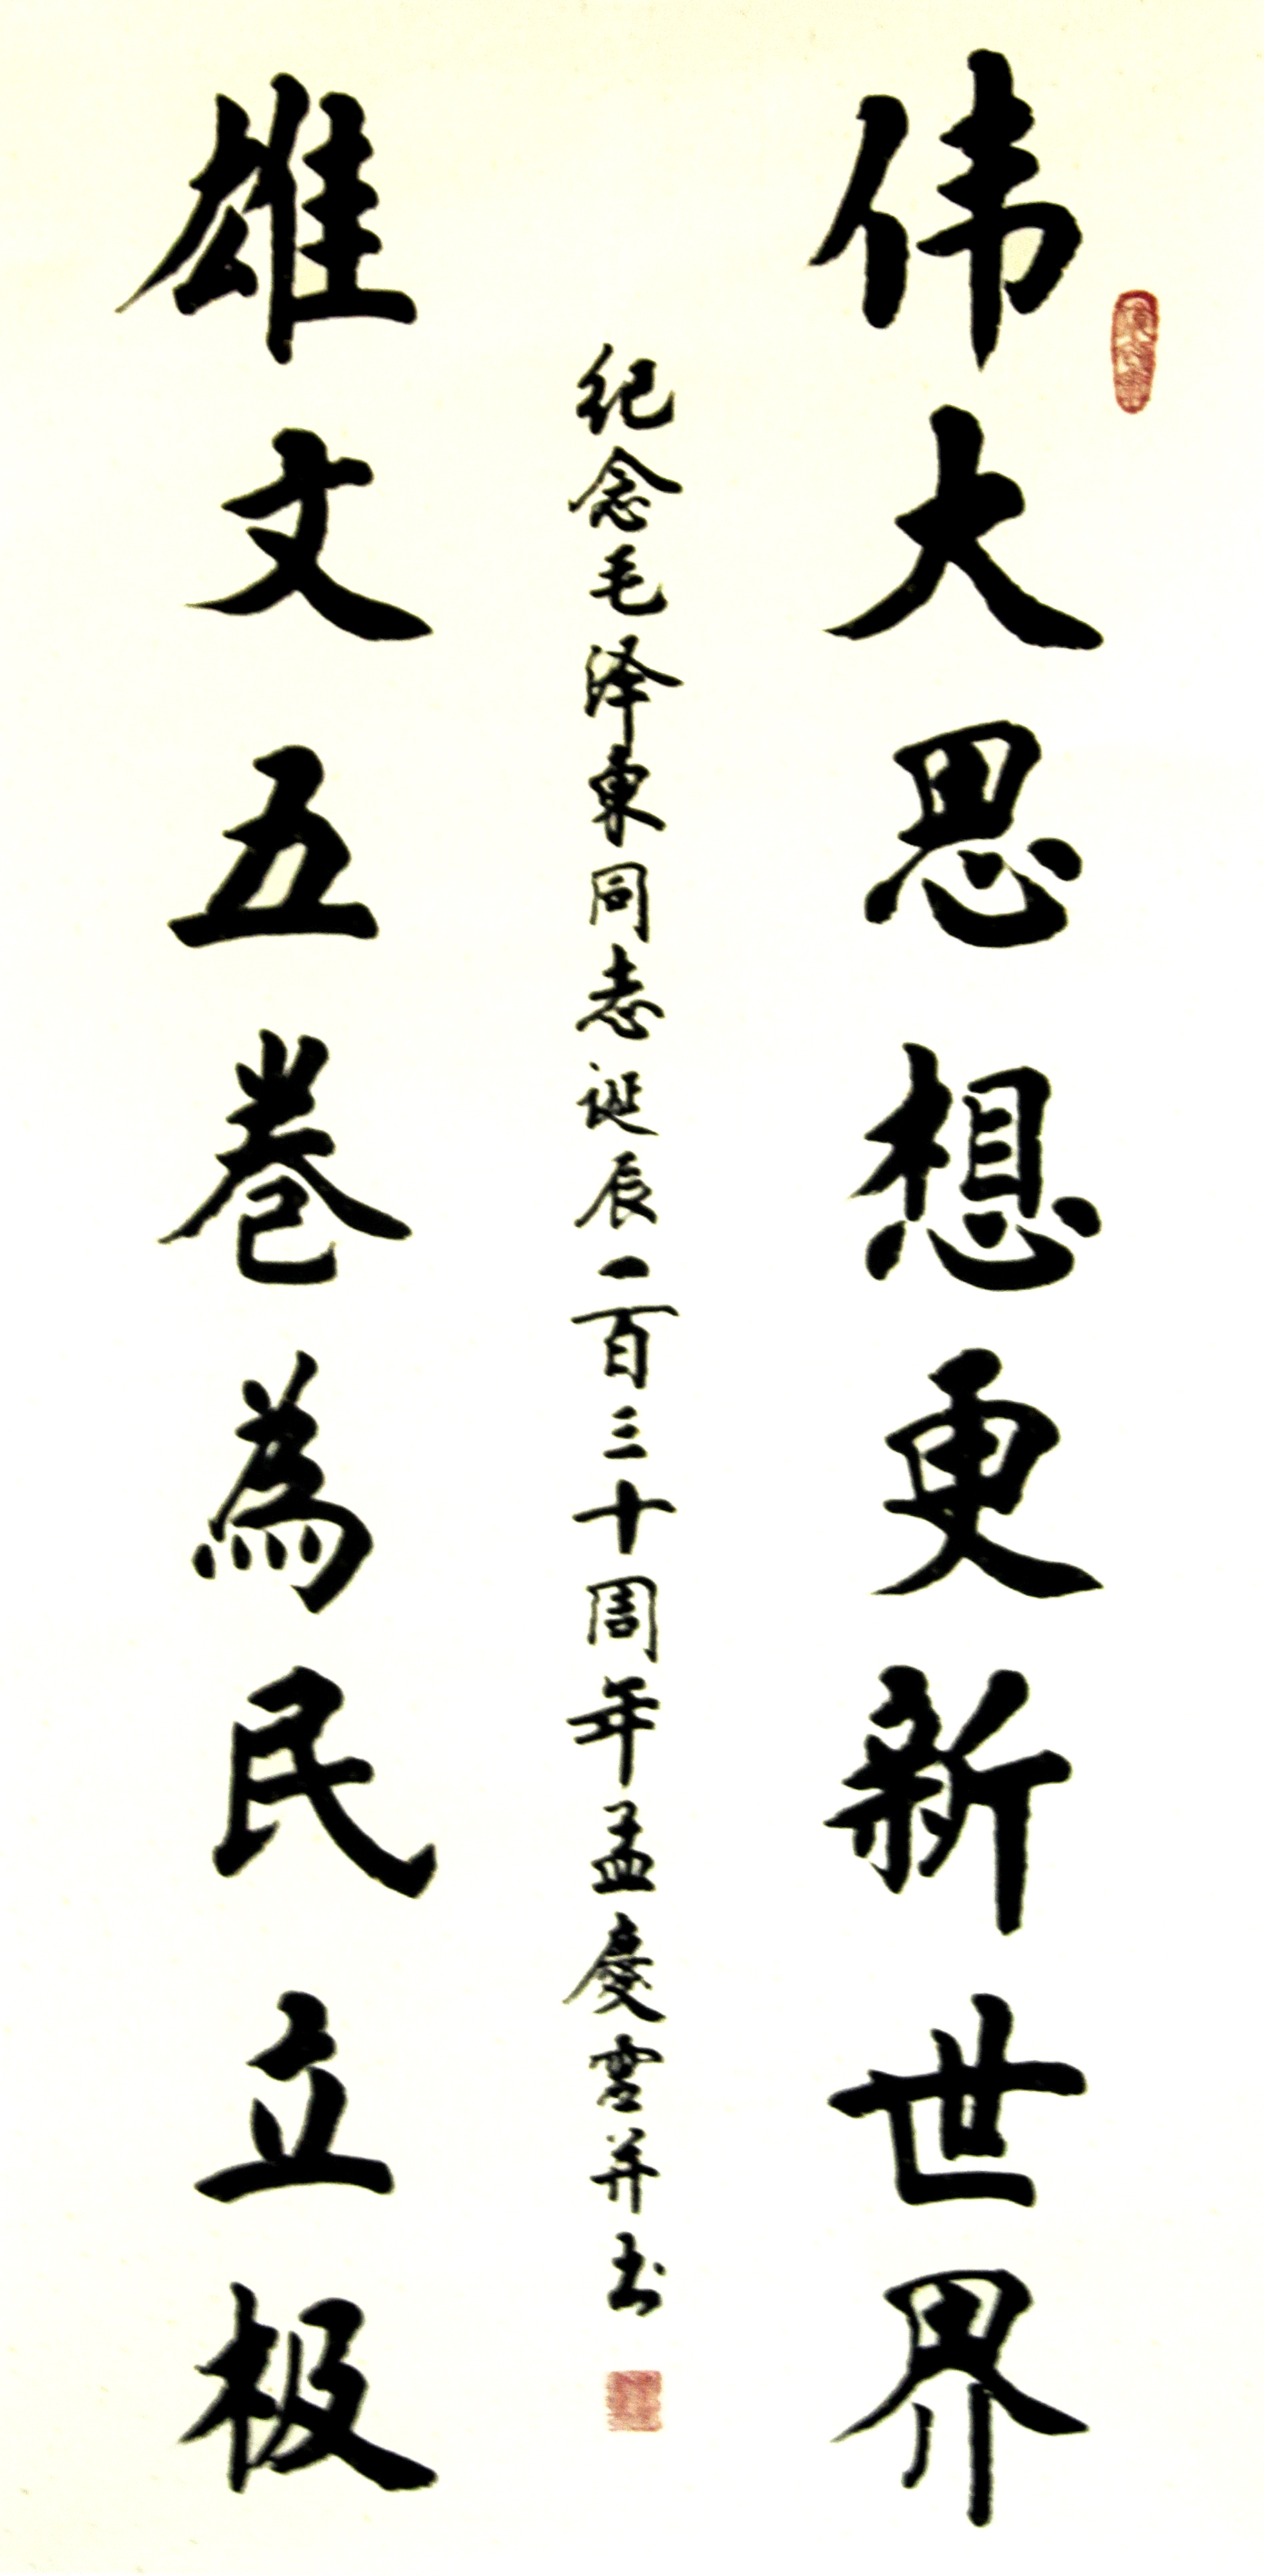 伟大思想更新世界
雄文五卷為民立极
纪念毛泽東同志诞辰一百三十周年孟慶雲并书